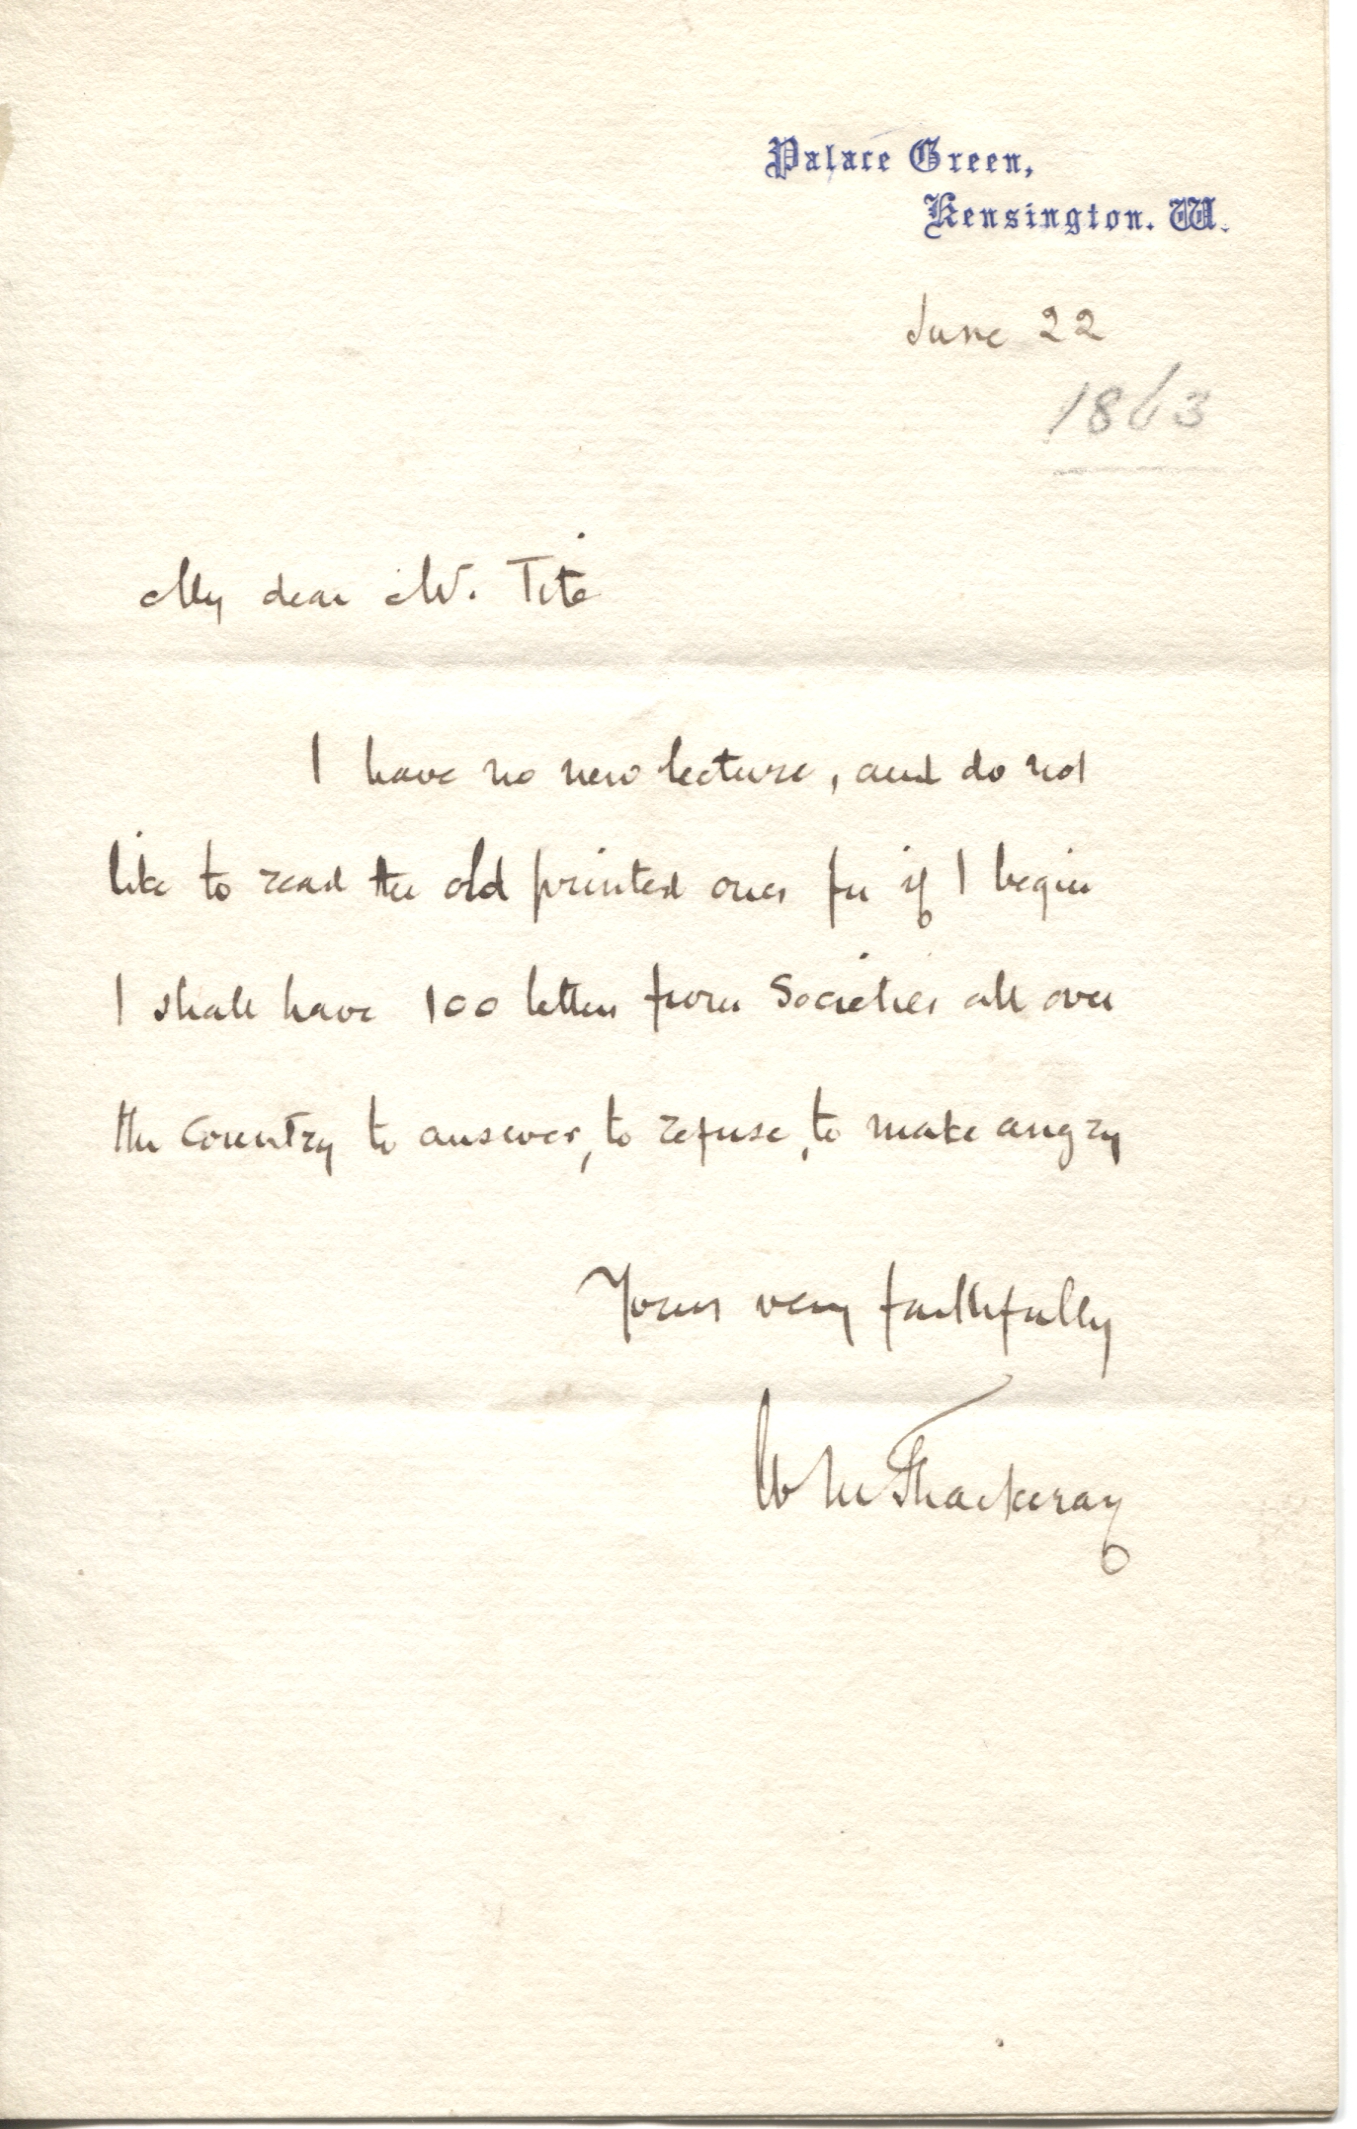 Palace Green,
Kensington. W.
June 22
1863
My dear Mr. Tite
I have no new lecture, and do not
like to read the old printed ones for if I begin
I shall have 100 letters from Societies all over
the Country to answer, to refuse, to make angry
Yours very faithfully
W M Thackeray